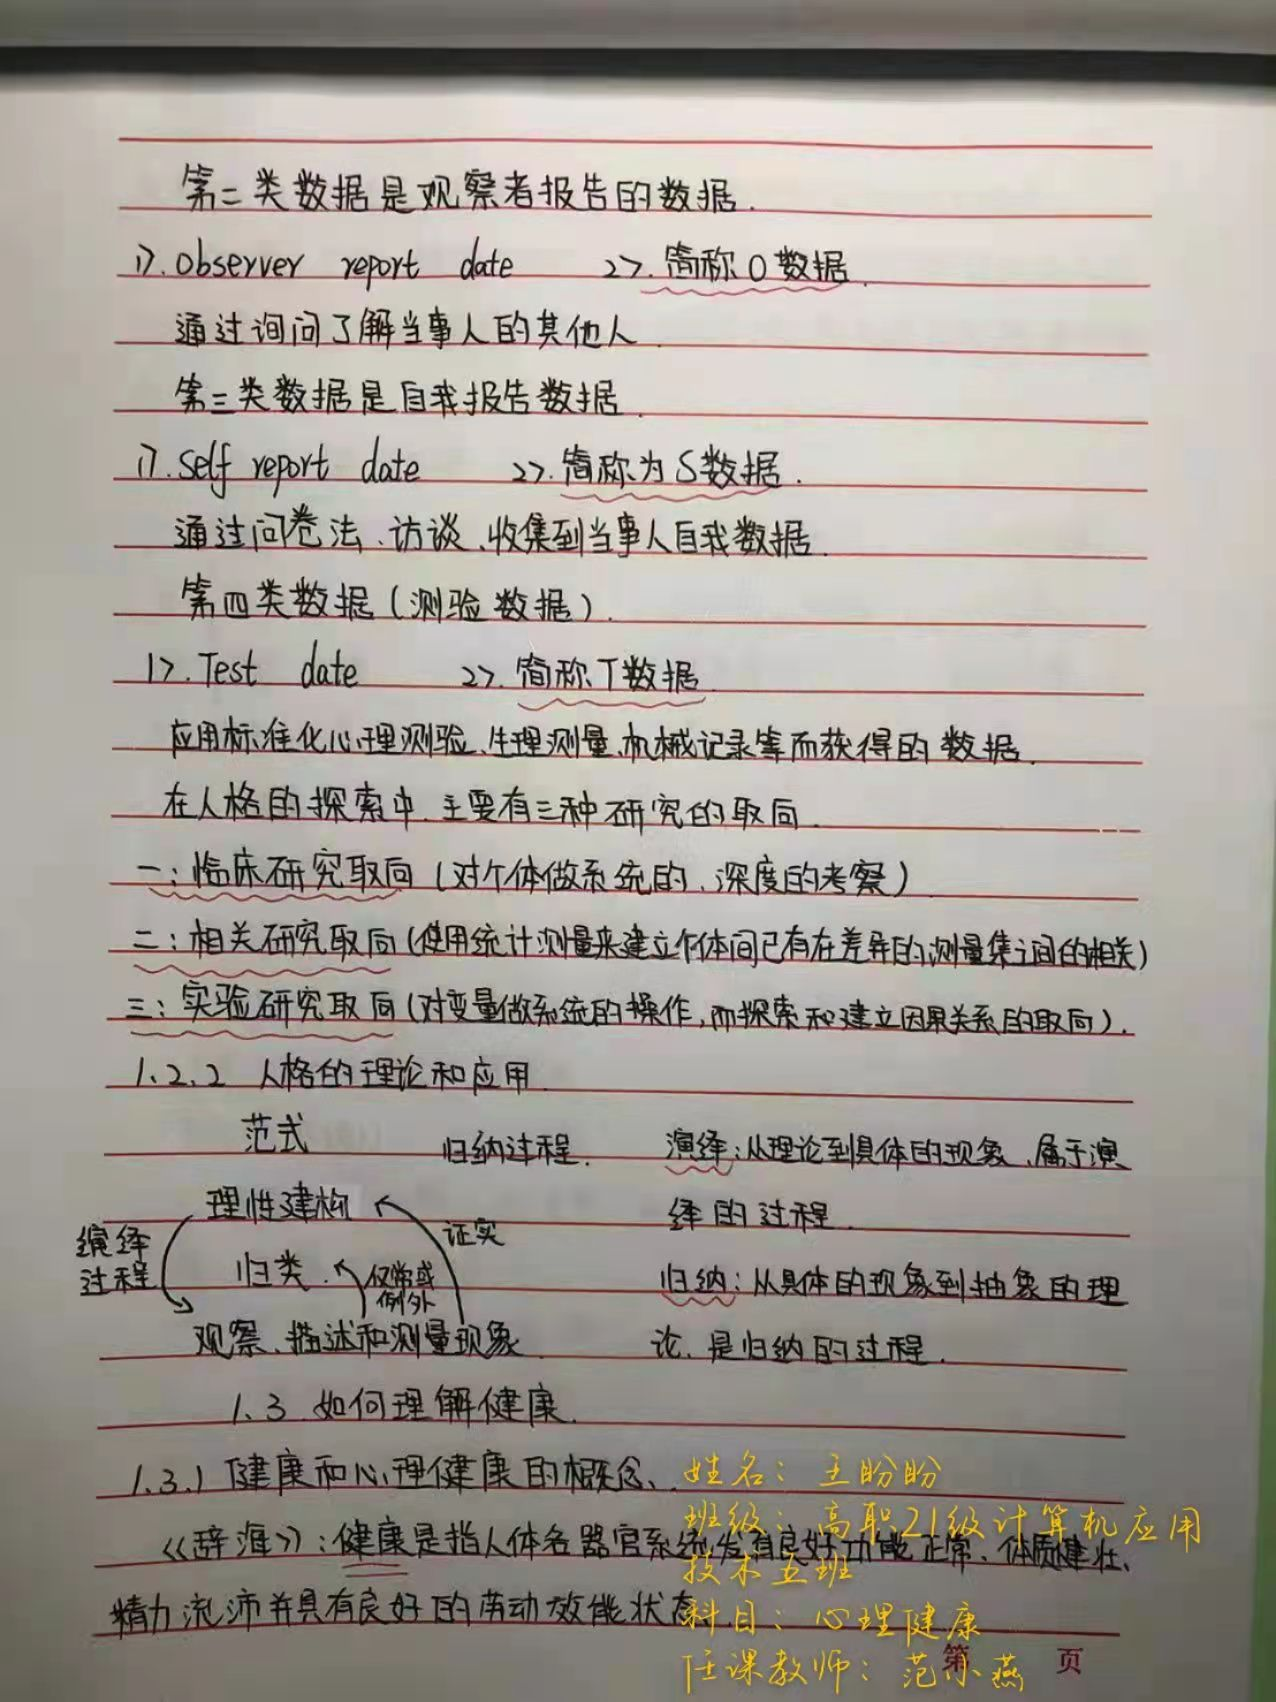 第二类数据是观察者报告的数据.
1>. observer report date 2>. 简称O数据.
通过询问了解当事人的其他人.
第三类数据是自我报告数据.
1>. Self report date 2>. 简称为S数据.
通过问卷法、访谈、收集到当事人自我数据.
第四类数据(测验数据).
1>. Test date 2>. 简称T数据.
应用标准化心理测验、生理测量、机械记录等而获得的数据.
在人格的探索中,主要有三种研究的取向.
一:临床研究取向(对个体做系统的、深度的考察)
二:相关研究取向(使用统计测量来建立个体间已有在差异的测量集之间的相关)
三:实验研究取向(对变量做系统的操作,而探索和建立因果关系的取向).
1.2.2 人格的理论和应用.
范式 归纳过程. 演绎:从理论到具体的现象、属于演
理性建构 证实 绎的过程.
演绎过程 归类. 仅常或例外 归纳:从具体的现象到抽象的理
观察、描述和测量现象. 论、是归纳的过程.
1.3 如何理解健康.
1.3.1 健康和心理健康的概念、
《辞海》:健康是指人体各器官系统发育良好功能正常、体质健壮、
精力充沛并具有良好的劳动效能状态.
姓名:王盼盼
班级:高职21级计算机应用
技术五班
科目:心理健康
任课教师:范小燕
第 页